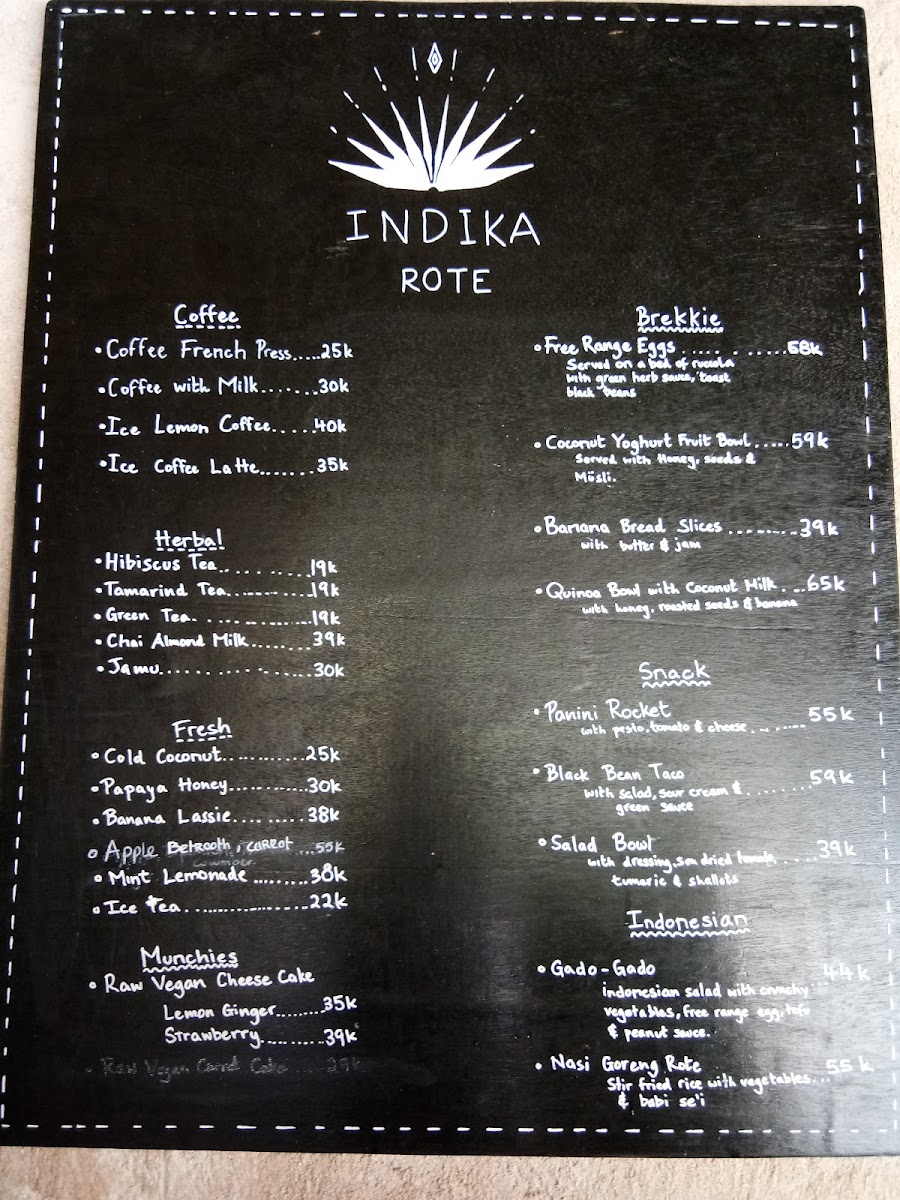 INDIKA
ROTE
Coffee
•Coffee French Press.....25k
•Coffee with Milk.......30k
•Ice Lemon Coffee.....40k
•Ice Coffee Latte.......35k
Herbal
•Hibiscus Tea...........19k
•Tamarind Tea...........19k
•Green Tea..............19k
•Chai Almond Milk.......39k
•Jamu...................30k
Fresh
•Cold Coconut...........25k
•Papaya Honey...........30k
•Banana Lassie..........38k
•Apple Betrooth, CARROT ...55k
•Mint Lemonade ........30k
•Ice Tea................22k
Munchies
•Raw Vegan Cheese Cake
Lemon Ginger........35k
Strawberry..........39k
•Raw Vegan Carrot Cake
Brekkie
•Free Range Eggs ............68k
Served on a bed of ruccola
with green herb sauce, toast
black beans
•Coconut Yoghurt Fruit Bowl.....59k
Served with Honey, seeds &
Müsli.
•Banana Bread Slices .........39k
with butter & jam
•Quinoa Bowl with Coconut Milk....65k
with honey, roasted seeds & banana
Snack
•Panini Rocket
with pesto, tomato & cheese.........55k
•Black Bean Taco
with salad, sour cream &.........59k
green sauce
•Salad Bowl
with dressing, sun dried tomato, .....39k
tumeric & shallots
Indonesian
•Gado-Gado 44k
indonesian salad with crunchy...
vegetables, free range egg, tofu
& peanut sauce.
•Nasi Goreng Rote 55k
Stir fried rice with vegetables...
& babi se'i